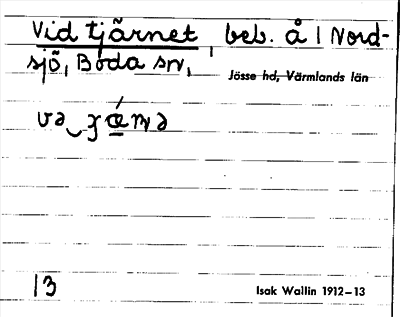 Vid tjärnet, beb. å 1 Nord-
sjö, Boda sn,
Jösse hd, Värmlands län
13
Isak Wallin 1912–13